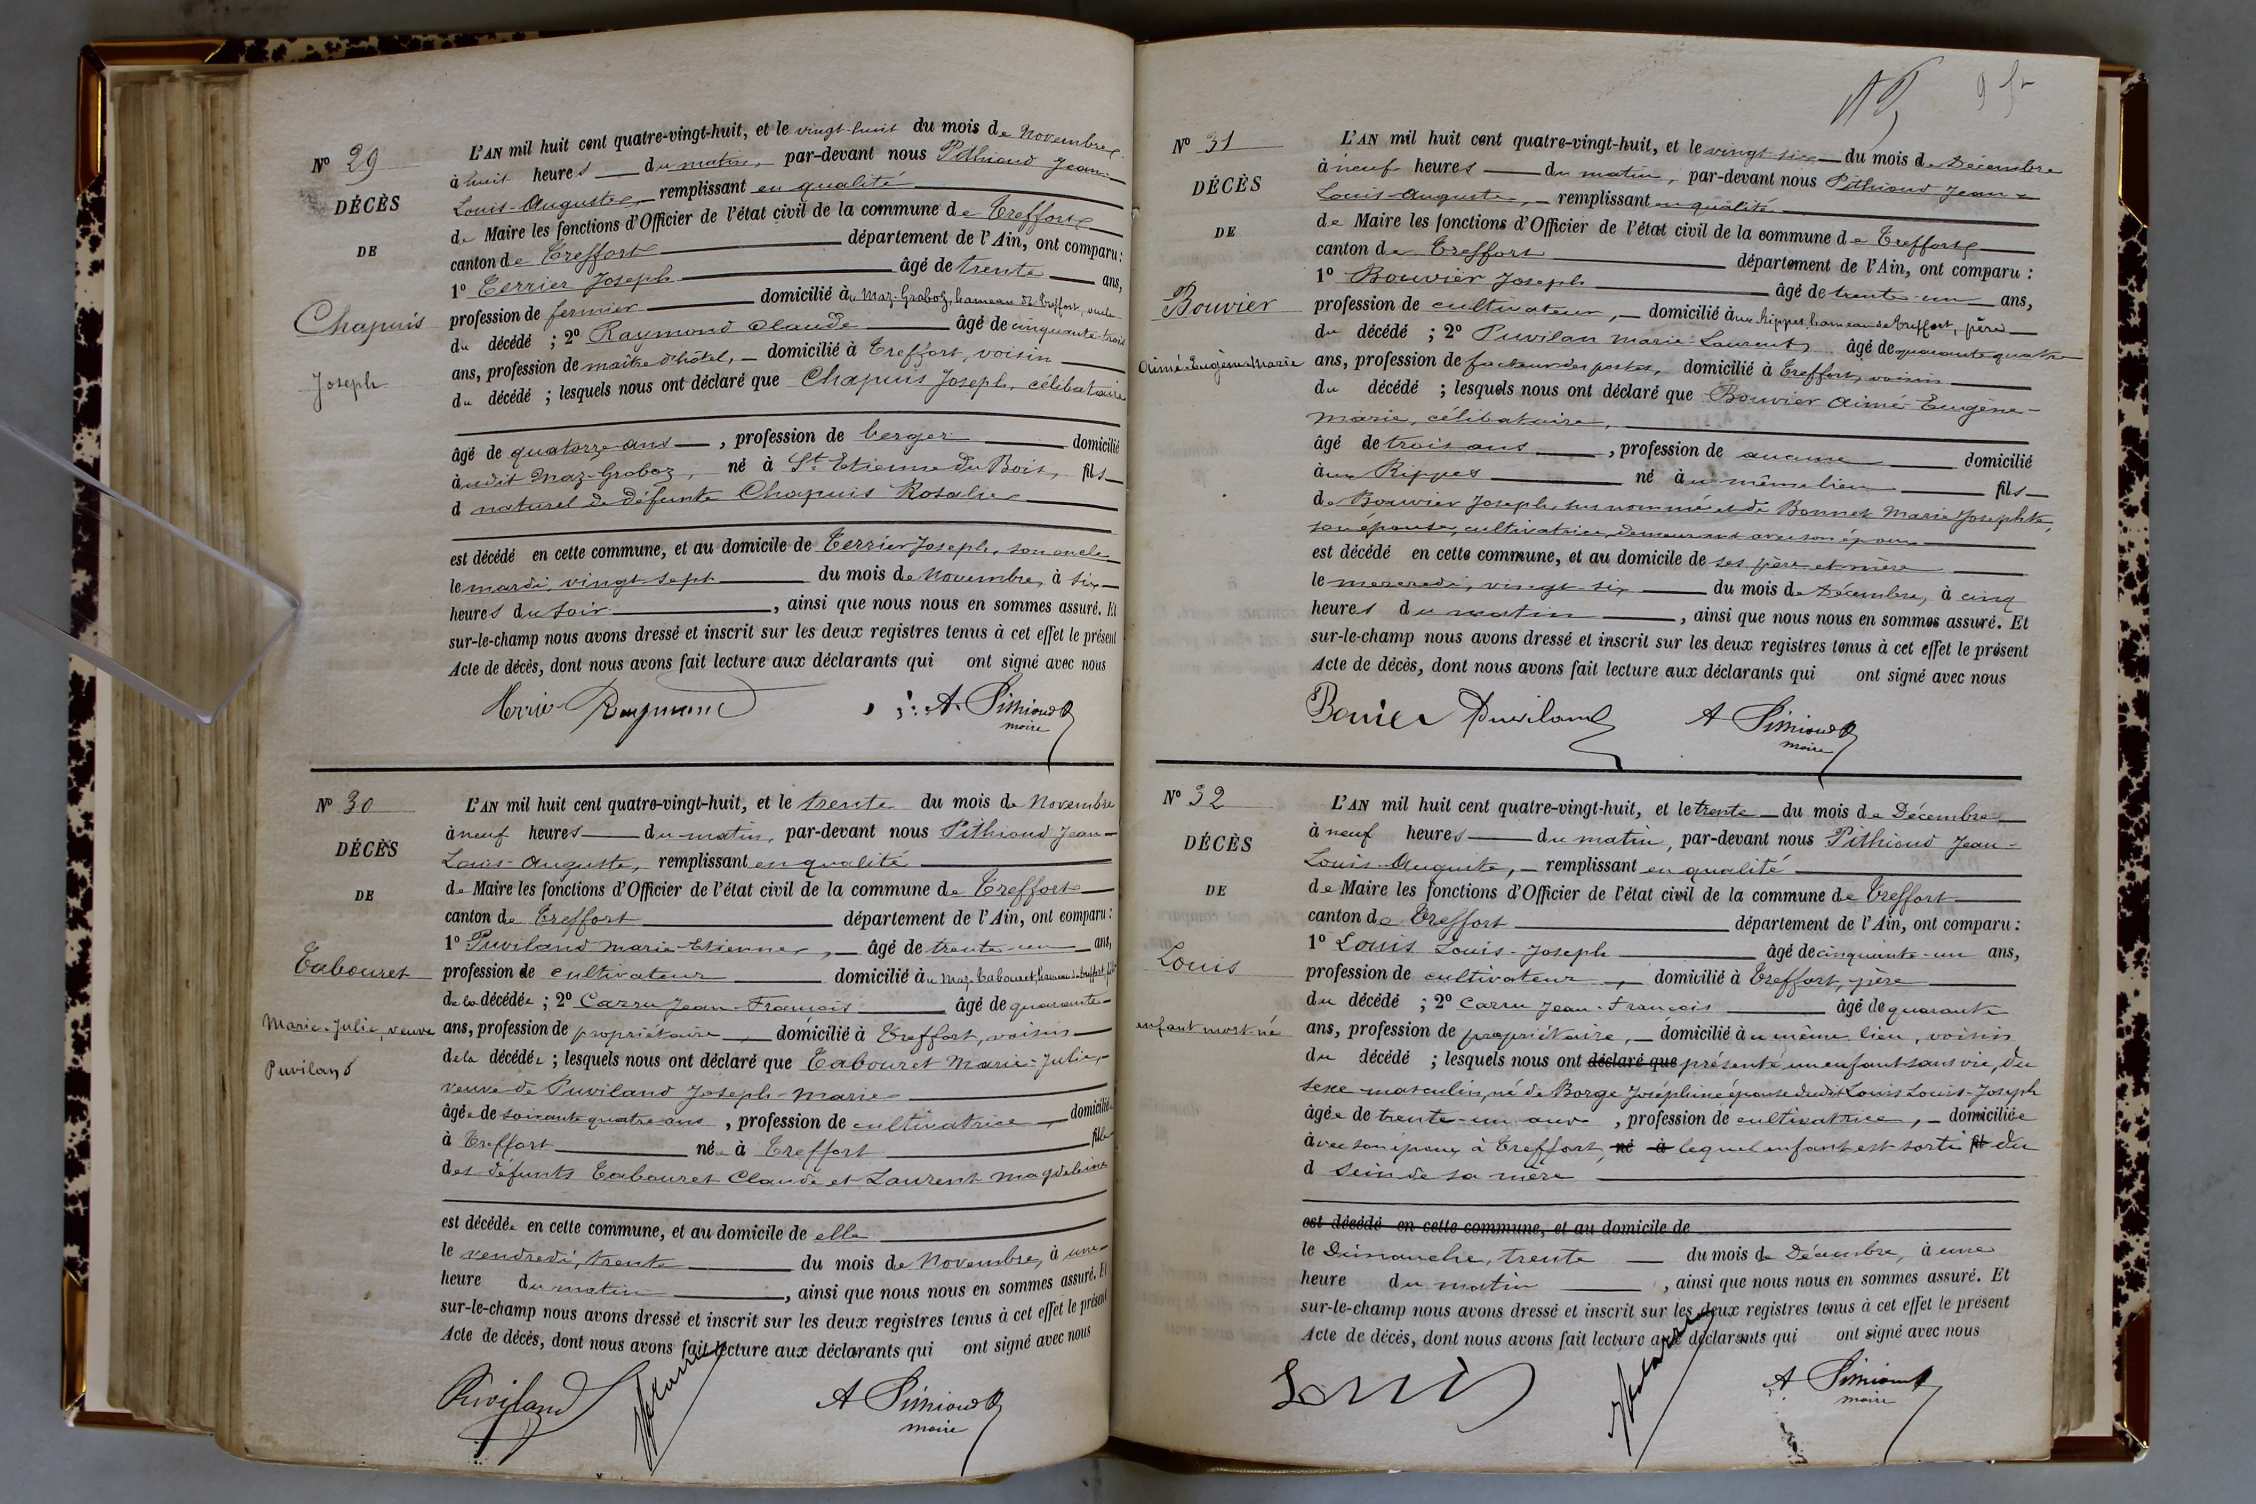 Nº 29
DÉCÈS
DE
Chapuis
Joseph
L'AN mil huit cent quatre-vingt-huit, et le vingt-huit du mois de Novembre
à huit heures du matin, par-devant nous Pithioud Jean-
Louis-Auguste, remplissant en qualité
de Maire les fonctions d'Officier de l'état civil de la commune de Treffort
canton de Treffort département de l'Ain, ont comparu :
1º Terrier Joseph âgé de trente ans,
profession de fermier domicilié à Maz-Groboz, hameau de Treffort, oncle
du décédé ; 2º Raymond Claude âgé de cinquante-trois
ans, profession de maître d'hôtel, domicilié à Treffort, voisin
du décédé ; lesquels nous ont déclaré que Chapuis Joseph, célibataire
âgé de quatorze ans, profession de berger domicilié
audit Maz-Groboz, né à St Etienne du Bois, fils
d naturel de défunte Chapuis Rosalie
est décédé en cette commune, et au domicile de Terrier Joseph, son oncle
le mardi, vingt-sept du mois de Novembre, à six
heures du soir, ainsi que nous nous en sommes assuré. Et
sur-le-champ nous avons dressé et inscrit sur les deux registres tenus à cet effet le présent
Acte de décès, dont nous avons fait lecture aux déclarants qui ont signé avec nous
Raymond A. Pithioud
maire
Nº 30
DÉCÈS
DE
Tabouret
Marie-Julie, veuve
Puviland
L'AN mil huit cent quatre-vingt-huit, et le trente du mois de Novembre
à neuf heures du matin, par-devant nous Pithioud Jean-
Louis-Auguste, remplissant en qualité
de Maire les fonctions d'Officier de l'état civil de la commune de Treffort
canton de Treffort département de l'Ain, ont comparu :
1º Puviland Marie-Etienne, âgé de trente-un ans,
profession de cultivateur domicilié au Maz-Tabouret, hameau de Treffort, fils
de la décédée ; 2º Carru Jean-François âgé de quarante
ans, profession de propriétaire, domicilié à Treffort, voisin
de la décédée ; lesquels nous ont déclaré que Tabouret Marie-Julie,
veuve de Puviland Joseph-Marie
âgée de soixante quatre ans, profession de cultivatrice, domiciliée
à Treffort née à Treffort fille
des défunts Tabouret Claude et Laurent Magdeleine
est décédée en cette commune, et au domicile de elle
le vendredi, trente du mois de Novembre, à une
heure du matin, ainsi que nous nous en sommes assuré. Et
sur-le-champ nous avons dressé et inscrit sur les deux registres tenus à cet effet le présent
Acte de décès, dont nous avons fait lecture aux déclarants qui ont signé avec nous
Puviland A Pithioud
maire
Nº 31
DÉCÈS
DE
Bouvier
Aimé-Eugène-Marie
L'AN mil huit cent quatre-vingt-huit, et le vingt-six du mois de Décembre
à neuf heures du matin, par-devant nous Pithioud Jean-
Louis-Auguste, remplissant en qualité
de Maire les fonctions d'Officier de l'état civil de la commune de Treffort
canton de Treffort département de l'Ain, ont comparu :
1º Bouvier Joseph âgé de trente-un ans,
profession de cultivateur, domicilié aux Rippes, hameau de Treffort, père
du décédé ; 2º Puvilan Marie-Laurent âgé de quarante quatre
ans, profession de facteur des postes, domicilié à Treffort, voisin
du décédé ; lesquels nous ont déclaré que Bouvier Aimé-Eugène-
Marie, célibataire,
âgé de trois ans, profession de aucune domicilié
aux Rippes né au même lieu fils
de Bouvier Joseph, susnommé et de Bonnet Marie Josephte,
son épouse, cultivatrice, demeurant avec son époux
est décédé en cette commune, et au domicile de ses père et mère
le mercredi, vingt-six du mois de Décembre, à cinq
heures du matin, ainsi que nous nous en sommes assuré. Et
sur-le-champ nous avons dressé et inscrit sur les deux registres tenus à cet effet le présent
Acte de décès, dont nous avons fait lecture aux déclarants qui ont signé avec nous
Puviland A Pithioud
maire
Nº 32
DÉCÈS
DE
Louis
enfant mort-né
L'AN mil huit cent quatre-vingt-huit, et le trente du mois de Décembre
à neuf heures du matin, par-devant nous Pithioud Jean-
Louis-Auguste, remplissant en qualité
de Maire les fonctions d'Officier de l'état civil de la commune de Treffort
canton de Treffort département de l'Ain, ont comparu :
1º Louis Louis-Joseph âgé de cinquante-un ans,
profession de cultivateur, domicilié à Treffort, père
du décédé ; 2º Carru Jean-François âgé de quarante
ans, profession de propriétaire, domicilié au même lieu, voisin
du décédé ; lesquels nous ont déclaré que présenté un enfant sans vie, du
sexe masculin, né de Borge Joséphine épouse dudit Louis Louis-Joseph
âgée de trente-un ans, profession de cultivatrice, domiciliée
avec son époux à Treffort, né à lequel enfant est sorti fil du
d sein de sa mère
est décédé en cette commune, et au domicile de
le Dimanche, trente du mois de Décembre, à une
heure du matin, ainsi que nous nous en sommes assuré. Et
sur-le-champ nous avons dressé et inscrit sur les deux registres tenus à cet effet le présent
Acte de décès, dont nous avons fait lecture aux déclarants qui ont signé avec nous
Louis A Pithioud
maire